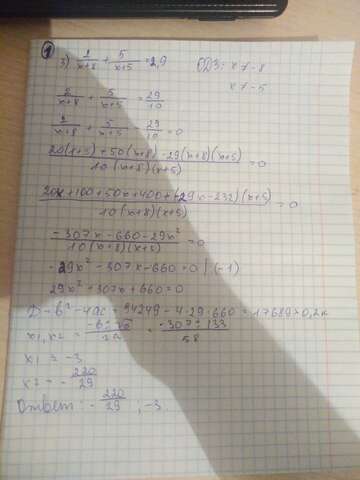 1
3) 2/(x+8) + 5/(x+5) = 2,9 ОДЗ: x ≠ -8
x ≠ -5
2/(x+8) + 5/(x+5) = 29/10
2/(x+8) + 5/(x+5) - 29/10 = 0
(20(x+5)+50(x+8)-29(x+8)(x+5))/(10(x+8)(x+5)) = 0
(20x+100+50x+400+(-29x-232)(x+5))/(10(x+8)(x+5)) = 0
(-307x-660-29x²)/(10(x+8)(x+5)) = 0
-29x²-307x-660=0 | (-1)
29x²+307x+660=0
D = b²-4ac = 94249-4·29·660=17689>0, 2к
x1,x2 = (-b±√D)/2a = (-307±133)/58
x1 = -3
x2 = -220/29
Ответ: -220/29, -3.